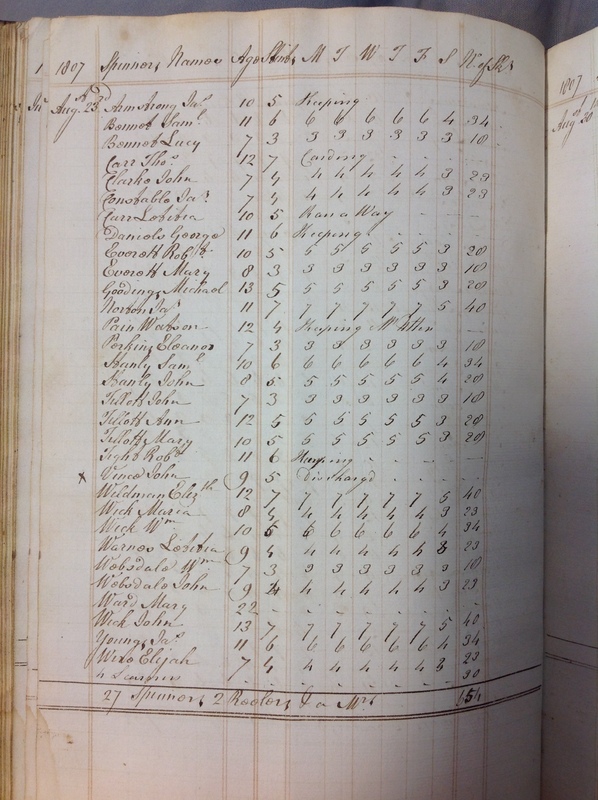 1 1807 Spinners Names Age Stint M T W T F S No of Sks
Aug.t 23d Armstrong Jas 10 5 Keeping
Bonner Saml 11 6 6 6 6 6 6 4 34
Bonner Lucy 7 3 3 3 3 3 3 3 18
Carr Thos 12 7 Carding - - -
Clarke John 7 4 4 4 4 4 4 3 23
Constable Jas 7 4 4 4 4 4 4 3 23
Carr Letitia 10 5 Ran a Way - - -
Daniels George 11 6 Keeping - - -
Everett Robt 10 5 5 5 5 5 5 3 28
Everett Mary 8 3 3 3 3 3 3 3 18
Gooding Michael 13 5 5 5 5 5 5 3 28
Norton Jas 11 7 7 7 7 7 7 5 40
Pain Watson 12 4 Keeping
Perkins Eleanor 7 3 3 3 3 3 3 3 18
Stanly Saml 10 6 6 6 6 6 6 4 34
Stanly John 8 5 5 5 5 5 5 4 28
Tillott John 7 3 3 3 3 3 3 3 18
Tillott Ann 12 5 5 5 5 5 5 3 28
Tillott Mary 10 5 5 5 5 5 5 3 28
Tight Robt 11 6 Keeping - - -
x Vince John 9 5 Dischargd - - -
Wildman Elizth 12 7 7 7 7 7 7 5 40
Wick Maria 8 4 4 4 4 4 4 3 23
Wick Wm 10 6 6 6 6 6 6 4 34
Warnes Letitia 9 4 4 4 4 4 4 3 23
Websdale Wm 7 3 3 3 3 3 3 3 18
Websdale John 9 4 4 4 4 4 4 3 23
Ward Mary 22 - - - - - - -
Wick John 13 7 7 7 7 7 7 5 40
Young Jas 11 6 6 6 6 6 6 4 34
Wix Elijah 7 4 4 4 4 4 4 3 23
4 - - - - - - 30
27 Spinners 2 Reelers & a Mrs
1807
Augst 30